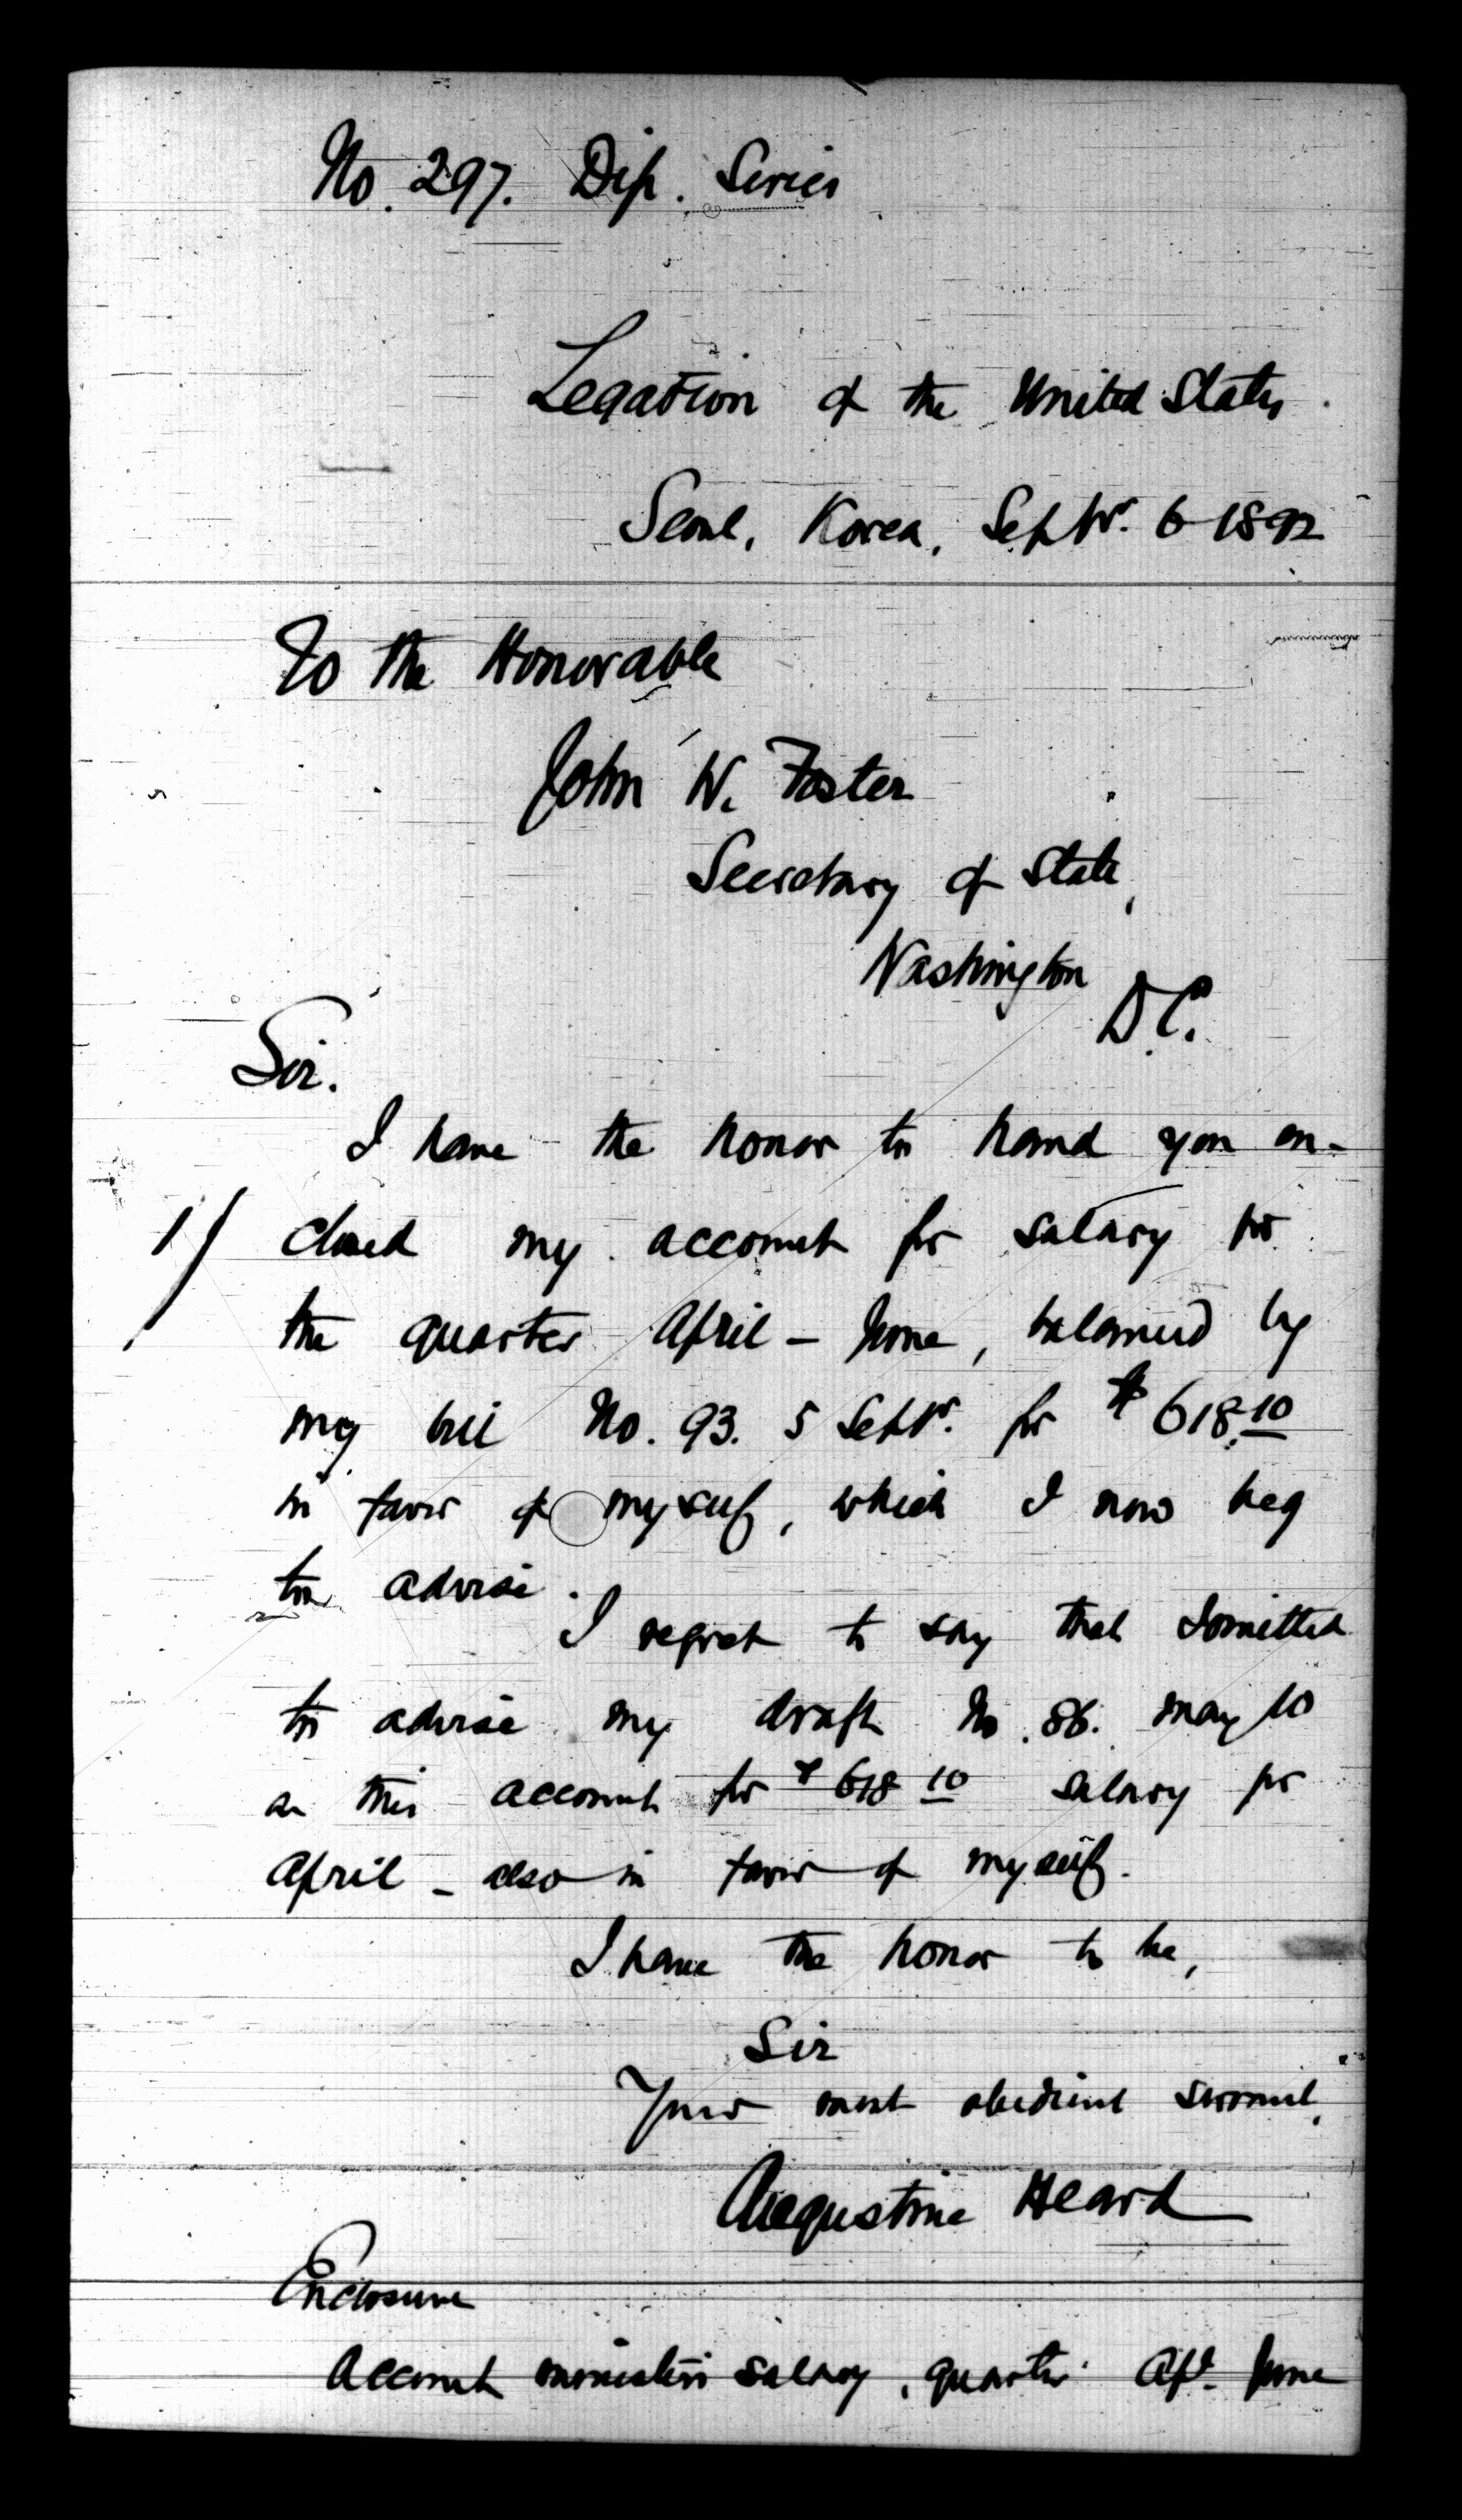 No. 297. Dip. Series
Legation of the United States.
Seoul, Korea, Septbr. 6 1892
To the Honorable
John W. Foster
Secretary of State,
Washington
D.C.
Sir.
I have the honor to hand you en-
1/ closed my account for salary for
the quarter April - June, balanced by
my bill No. 93. 5 Septbr. for $618.10
in favor of myself, which I now beg
to advise.
I regret to say that I omitted
to advise my draft No. 86. May 10
on this account for $618 10 salary for
April - also in favor of myself.
I have the honor to be,
Sir
Your most obedient servant,
Augustine Heard
Enclosure
Account minister's salary, quarter Apl. June